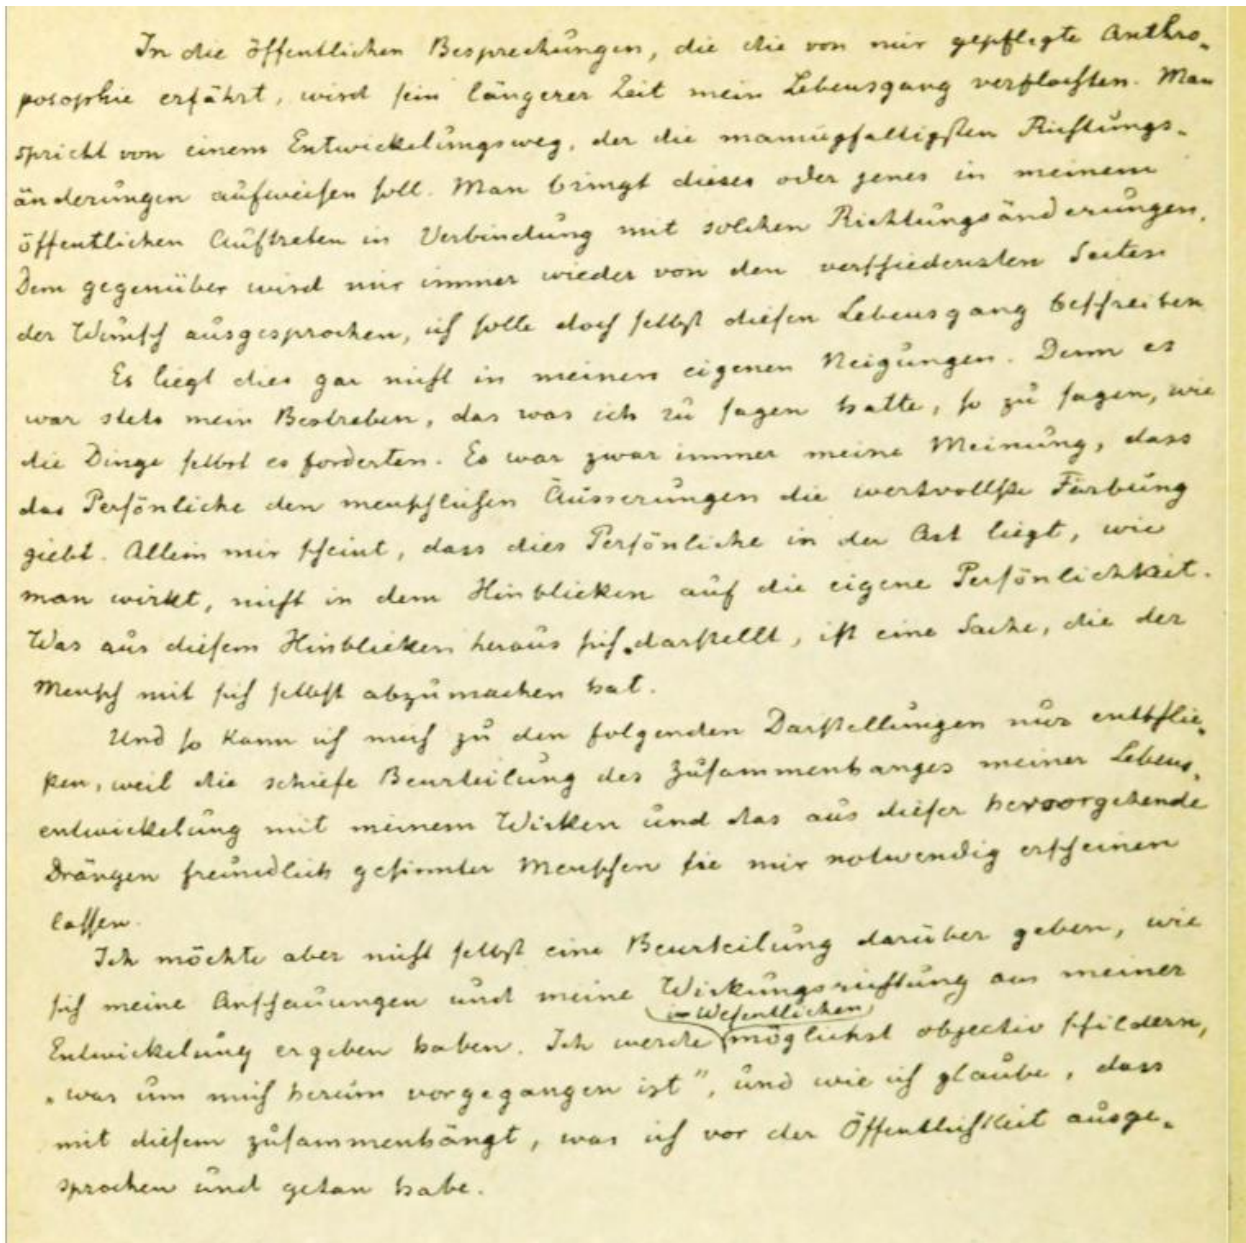 In die öffentlichen Besprechungen, die die von mir gepflegte Anthro-
posophie erfährt, wird sein längerer Zeit mein Lebensgang verflochten. Man
spricht von einem Entwickelungsweg, der die mannigfaltigsten Richtungs-
änderungen aufweisen soll. Man bringt dieses oder jenes in meinem
öffentlichen Auftreten in Verbindung mit solchen Richtungsänderungen.
Dem gegenüber wird mir immer wieder von den verschiedensten Seiten
der Wunsch ausgesprochen, ich solle doch selbst diesen Lebensgang beschreiben
Es liegt dies gar nicht in meinen eigenen Neigungen. Denn es
war stets mein Bestreben, das was ich zu sagen hatte, so zu sagen, wie
die Dinge selbst es forderten. Es war zwar immer meine Meinung, dass
das Persönliche den menschlichen Äusserungen die wertvollste Färbung
giebt. Allein mir scheint, dass dies Persönliche in der Art liegt, wie
man wirkt, nicht in dem Hinblicken auf die eigene Persönlichkeit.
Was aus diesem Hinblicken heraus sich darstellt, ist eine Sache, die der
Mensch mit sich selbst abzumachen hat.
Und so kann ich mich zu den folgenden Darstellungen nur entschlie-
ßen, weil die schiefe Beurteilung des Zusammenhanges meiner Lebens-
entwickelung mit meinem Wirken und das aus dieser hervorgehende
Drängen freundlich gesinnter Menschen sie mir notwendig erscheinen
lassen.
Ich möchte aber nicht selbst eine Beurteilung darüber geben, wie
sich meine Anschauungen und meine Wirkungsrichtung aus meiner
im Wesentlichen
Entwickelung ergeben haben. Ich werde möglichst objectiv schildern,
„was um mich herum vorgegangen ist", und wie ich glaube, dass
mit diesem zusammenhängt, was ich vor der Öffentlichkeit ausge-
sprochen und getan habe.